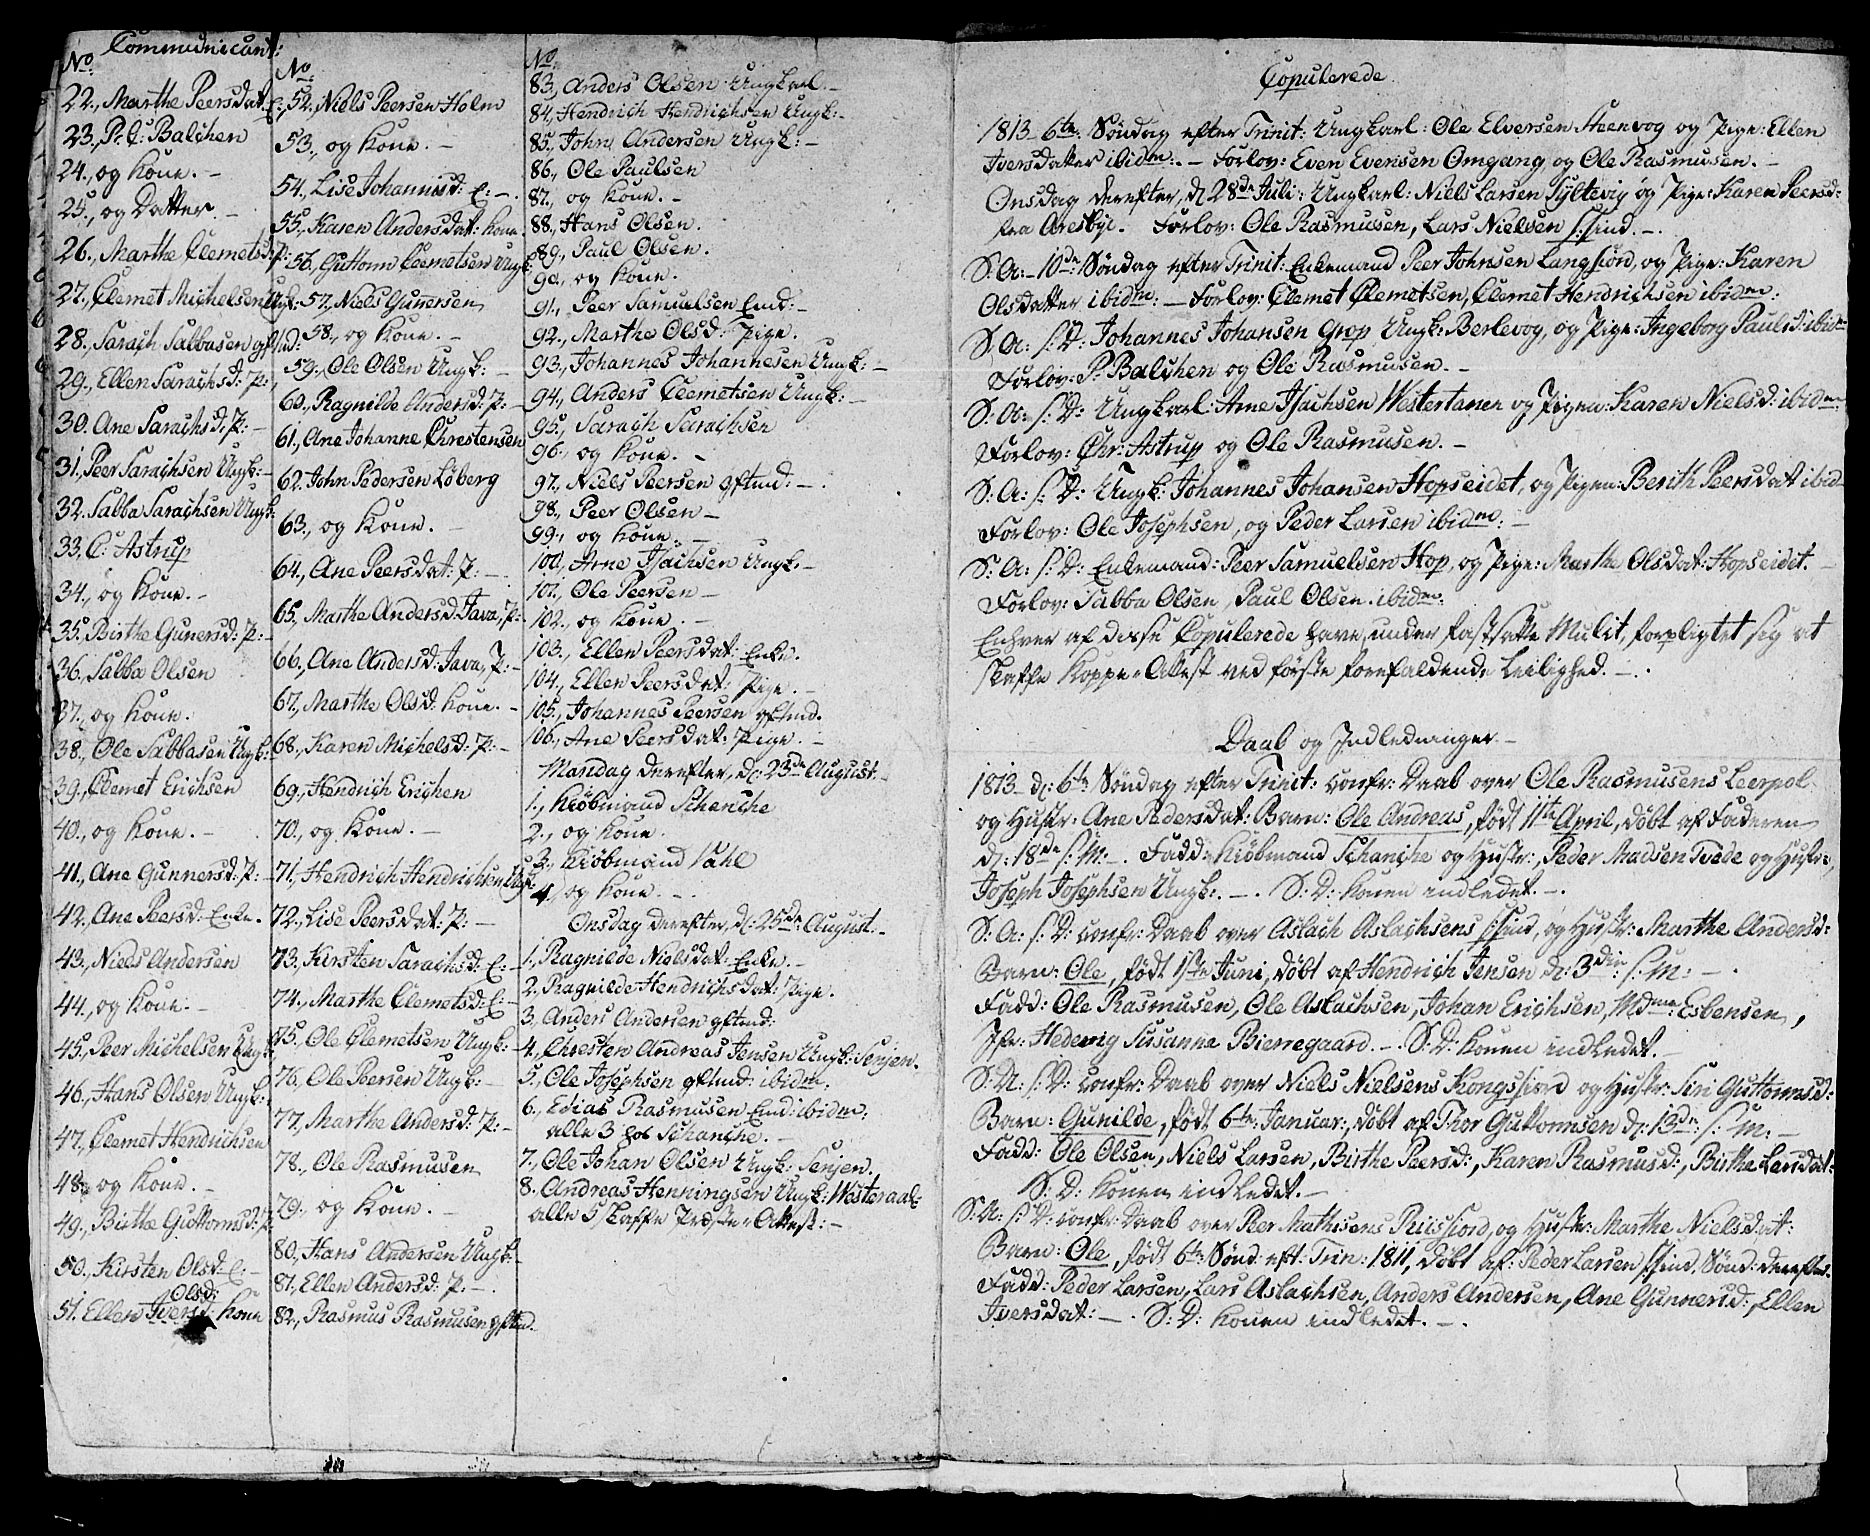 Communicant:
No
22., Marthe Peersdat. E:
23., Pr. C: Balchen
24., og Kone. -
25., og Datter. -
26., Marthe Clemetsd: P:
27., Clemet Michelsen Ugk:
28., Sarach Sabbasen gftmd:
29., Ellen Sarachsd: P:
30. Ane Sarachsd: P: -
31., Peer Sarachsen Ungk: -
32. Sabba Sarachsen Ungk:
33. C: Astrup
34., og Kone. -
35. Birthe Gunersd: P: -
36., Sabba Olsen
37., og Kone.
38., Ole Sabbasen Ungk:
39., Clemet Erichsen
40., og Kone. -
41., Ane Gunnersd: P: -
42., Ane Peersd: Enke.
43., Niels Andersen
44., og Kone. -
45., Peer Michelsen Ungk:
46., Hans Olsen Ungk:
47., Clemet Hendrichsen
48., og Kone. -
49., Birthe Guttormsd: P:
50., Kirsten Olsd: E: -
Olsd:
51. Ellen Iversd: Kone
No
52., Niels Peersen Holm
53., og Kone. -
54., Lise Johannisd: E: -
55., Karen Andersdat: Kone.
56., Guttorm Clemetsen Ungk:
57., Niels Gunersen
58., og Kone. -
59., Ole Olsen Ungk: -
60., Ragnilde Andersd: P: -
61., Ane Johanne Chrestensen
62. John Pedersen Löberg
63., og Kone. -
64., Ane Peersdat: P: -
65., Marthe Andersd: Java, P: -
66., Ane Andersd: Java, P: -
67., Marthe Olsd: Kone. -
68., Karen Michelsd: P: -
69., Hendrich Erichen
70., og Kone. -
71., Hendrich Hendrichsen Ugk:
72., Lise Peersdat: P: -
73., Kirsten Sarachsd: E: -
74., Marthe Clemetsd: E: -
75., Ole Clemetsen Ungk: -
76., Ole Peersen Ungk: -
77., Marthe Andersd: P: -
78., Ole Rasmusen
79., og Kone. -
80., Hans Andersen Ungk: -
81., Ellen Andersd: P: -
82., Rasmus Rasmusen gftmd.
No
83., Anders Olsen Ungkarl. -
84., Hendrich Hendrichsen Ungk: -
85., John Andersen Ungk: -
86., Ole Paulsen
87., og Kone. -
88., Hans Olsen.
89., Paul Olsen.
90., og Kone.
91., Peer Samuelsen Emd: -
92., Marthe Olsd: Pige.
93., Johannes Johannesen Ungk: -
94., Anders Clemetsen Ungk: -
95., Sarach Sarachsen
96., og Kone. -
97., Niels Peersen gftmd: -
98., Peer Olsen -
99., og Kone. -
100., Arne Isachsen Ungk. -
101., Ole Peersen -
102., og Kone. -
103., Ellen Peersdat: Enke.
104., Ellen Peersdat: Pige. -
105., Johannes Peersen gftmd.
106., Ane Peersdat: Pige. -
Mandag derefter, d: 23de August. -
1., Kiöbmand Schanche
2., og Kone.
3., Kiöbmand Vahl
4., og Kone. -
Onsdag derefter, d: 25de August. -
1., Ragnilde Nielsdat: Enke. -
2. Ragnilde Hendrichsdat: Pige.
3., Anders Andersen gftmd:
4., Chresten Andreas Jensen Ungk: Senjen.
5., Ole Josephsen gftmd: ibidm.
6., Edias Rasmusen Emd: ibidm:
alle 3 hos Schanche. -
7., Ole Johan Olsen Ungk: Senjen.
8. Andreas Henningsen Ungk: Westeraal:
alle 5 skaffe Præste-Attest: -
Copulerede
1813 6te Söndag efter Trinit: Ungkarl: Ole Elversen Steenvog og Pige: Ellen
Iversdatter ibidm. - Forlov: Even Evensen Omgang, og Ole Rasmusen. -
Onsdag derefter, d: 28de Juli: Ungkarl: Niels Larsen Syltevig og Pige: Karen Peersd:
fra Aresbye. Forlov: Ole Rasmusen, Lars Nielsen s:sind. -
S: A: - 10de: Söndag efter Trinit: Enkemand Peer Johnsen Langfiord, og Pige: Karen
Olsdatter ibidm: - Forlov: Clemet Clemetsen, Clemet Hendrichsen ibidm:
S: A: s: D: Johannes Johansen Grop Ungk: Berlevog, og Pige: Ingeborg Paulsd: ibidm
Forlov: P. Balchen og Ole Rasmusen. -
S: A: s: D: Ungkarl: Arne Isachsen Westertanen og Pigen: Karen Nielsd: ibidm
Forlov: Chr: Astrup og Ole Rasmusen. -
S: A: s: D: Ungk: Johannes Johansen Hopseidet, og Pigen: Berith Peersdat ibid-
Forlov: Ole Josephsen, og Peder Larsen ibidm: -
S: A: s: D: Enkemand: Peer Samuelsen Hop, og Pige: Marthe Olsdat: Hopseidet. -
Forlov: Sabba Olsen, Paul Olsen ibidm:
Enhver af disse Copulerede have, under fastsatte Mulct, forpligtet sig at
skaffe Koppe-Attest ved förste forefaldende Leilighed. -
Daab og Indledninger -
1813 d: 6te Söndag efter Trinit: confr: Daab over Ole Rasmusens Leerpol
og Hustr: Ane Pedersdat: Barn: Ole Andreas, födt 11te April, döbt af Faderen
d: 18de s: M: -. Fadd: Kiöbmand Schanche og Hustr:, Peder Madsen Tvede og Hustr:,
Joseph Josephsen Ungk: -. S: D: Konen indledet. -.
S: A: s: D: confr: Daab over Aslach Aslachsens s:sind, og Hustr: Marthe Andersd:
Barn: Ole, födt 1ste Juni, döbt af Hendrich Jensen d: 3die: s: M: -.
Fadd: Ole Rasmusen, Ole Aslachsen, Johan Erichsen, Mdme: Esbensen,
Jfr: Hedevig Susanne Bierregaard. -. S: D: Konen indledet. -
S: A: s: D: confr: Daab over Niels Nielsens Kongsfiord og Hustr: Siri Guttormsd:
Barn: Gunilde, födt 6te: Januar:, döbt af Thor Guttormsen d: 13de: s: M: -
Fadd: Ole Olsen, Niels Larsen, Birthe Peersd:, Karen Rasmusd:, Birthe Larsdat:
S: D: Konen indledet. -
S: A: s: D: confr: Daab over Peer Mathisens Riisfiord, og Hustr: Marthe Nielsdat:
Barn: Ole, födt 6te Sönd: eft: Trin: 1811, döbt af: Peder Larsen s:sind, Sönd: derefter.
Fadd: Peder Larsen, Lars Aslachsen, Anders Andersen, Ane Gunnersd:, Ellen
Iversdat: -. S: D: Konen indledet. -.